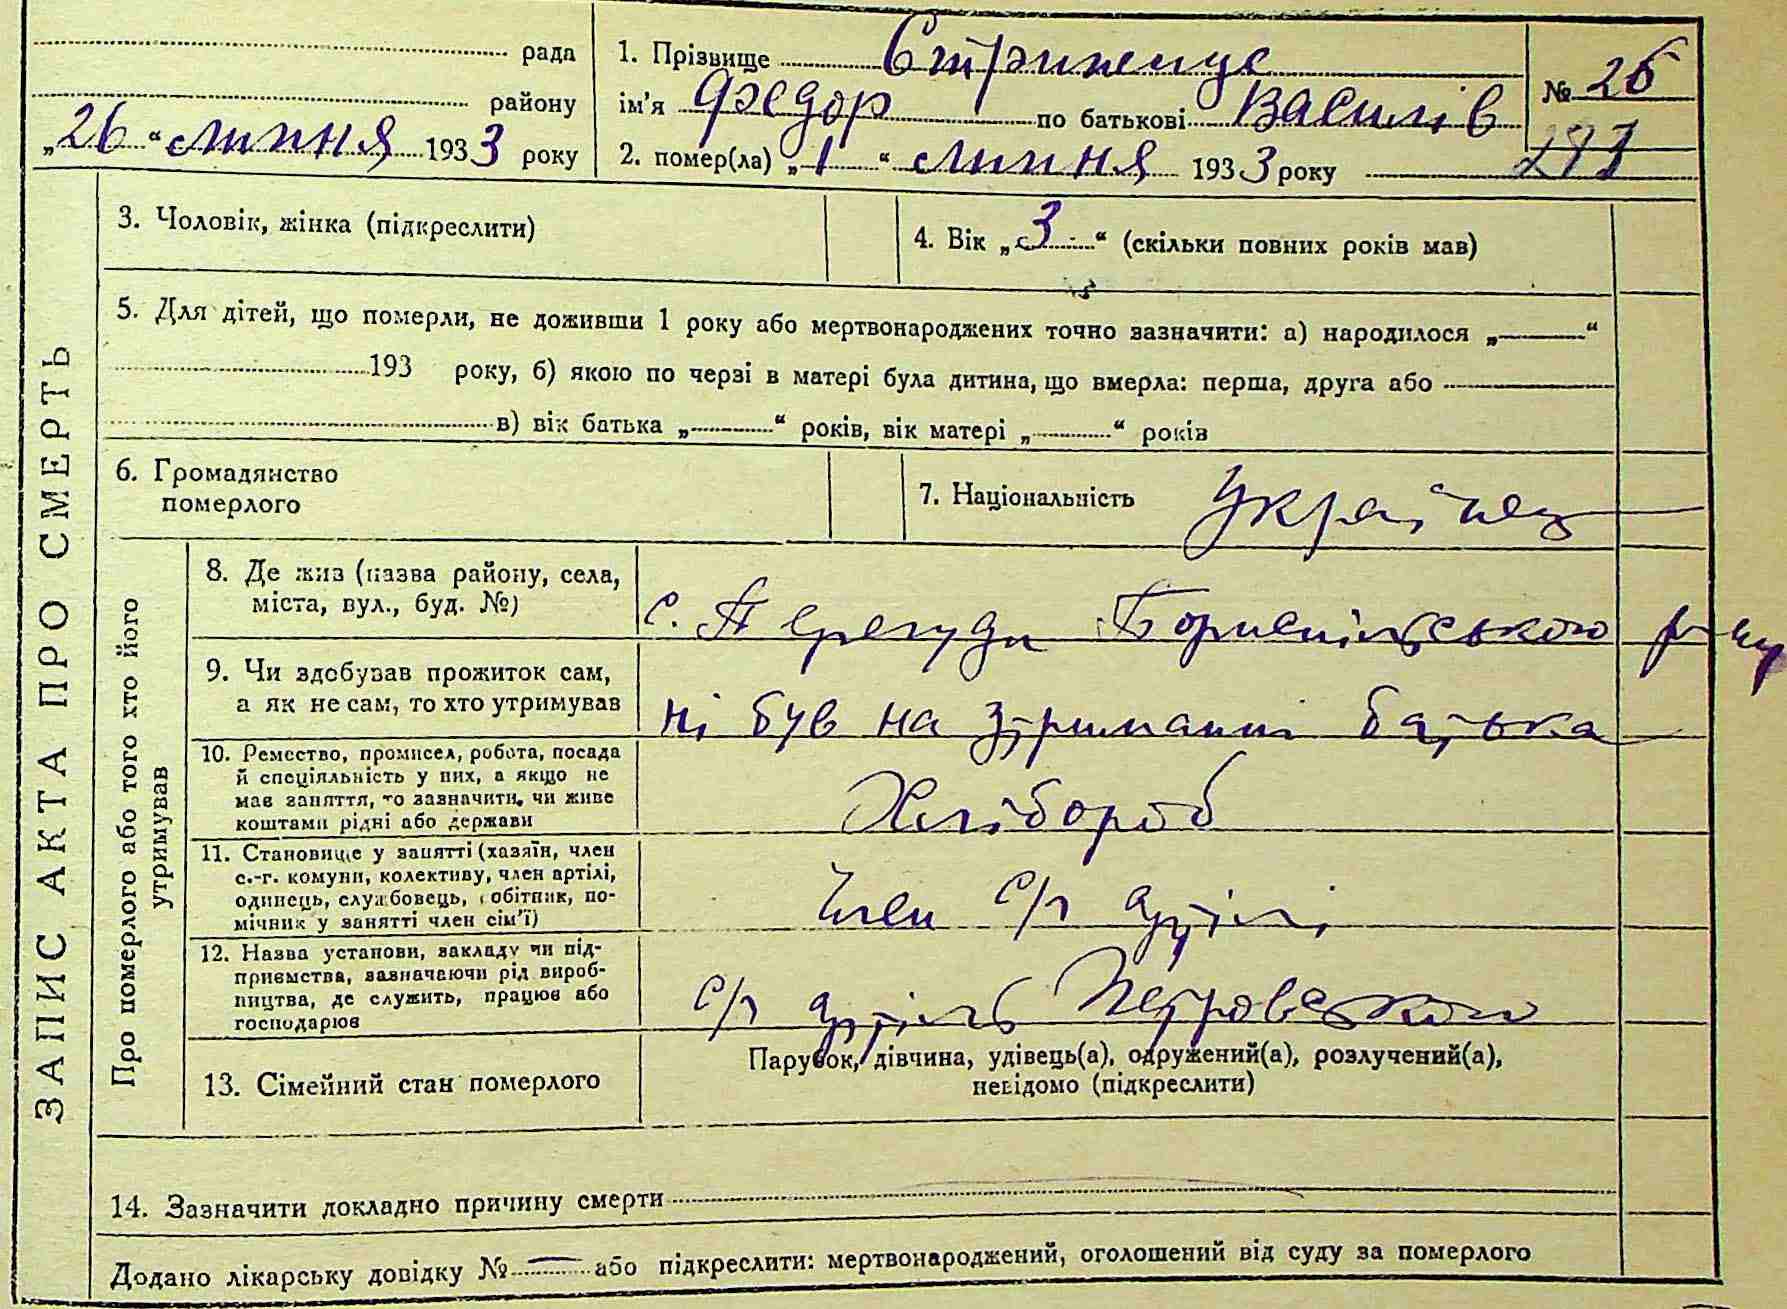 рада
району
„26“ липня 1933 року
1. Прізвище
ім'я Федор по батькові Василів
2. помер(ла) „1“ липня 1933 року
№ 26
ЗАПИС АКТА ПРО СМЕРТЬ
3. Чоловік, жінка (підкреслити)
4. Вік „3“ (скільки повних років мав)
5. Для дітей, що померли, не доживши 1 року або мертвонароджених точно зазначити: а) народилося „—“
193 року, б) якою по черзі в матері була дитина, що вмерла: перша, друга або
в) вік батька „ “ років, вік матері „ “ років
6. Громадянство
померлого
7. Національність Українец
Про померлого або того хто його
утримував
8. Де жив (назва району, села,
міста, вул., буд. №)
с. Перегуди Бориспільського р-ну
9. Чи здобував прожиток сам,
а як не сам, то хто утримував
ні був на утриманні батька
10. Ремество, промисел, робота, посада
й спеціяльність у них, а якщо не
мав заняття, то зазначити, чи живе
коштами рідні або держави
Хлібороб
11. Становище у занятті (хазяїн, член
с.-г. комуни, колективу, член артілі,
одинець, службовець, робітник, по-
мічник у занятті член сім'ї)
Член с/г артілі
12. Назва установи, закладу чи під-
приємства, зазначаючи рід вироб-
ництва, де служить, працює або
господарює
с/г артіль Петровського
13. Сімейний стан померлого
Парубок, дівчина, удівець(а), одружений(а), розлучений(а),
невідомо (підкреслити)
14. Зазначити докладно причину смерти
Додано лікарську довідку № — або підкреслити: мертвонароджений, оголошений від суду за померлого